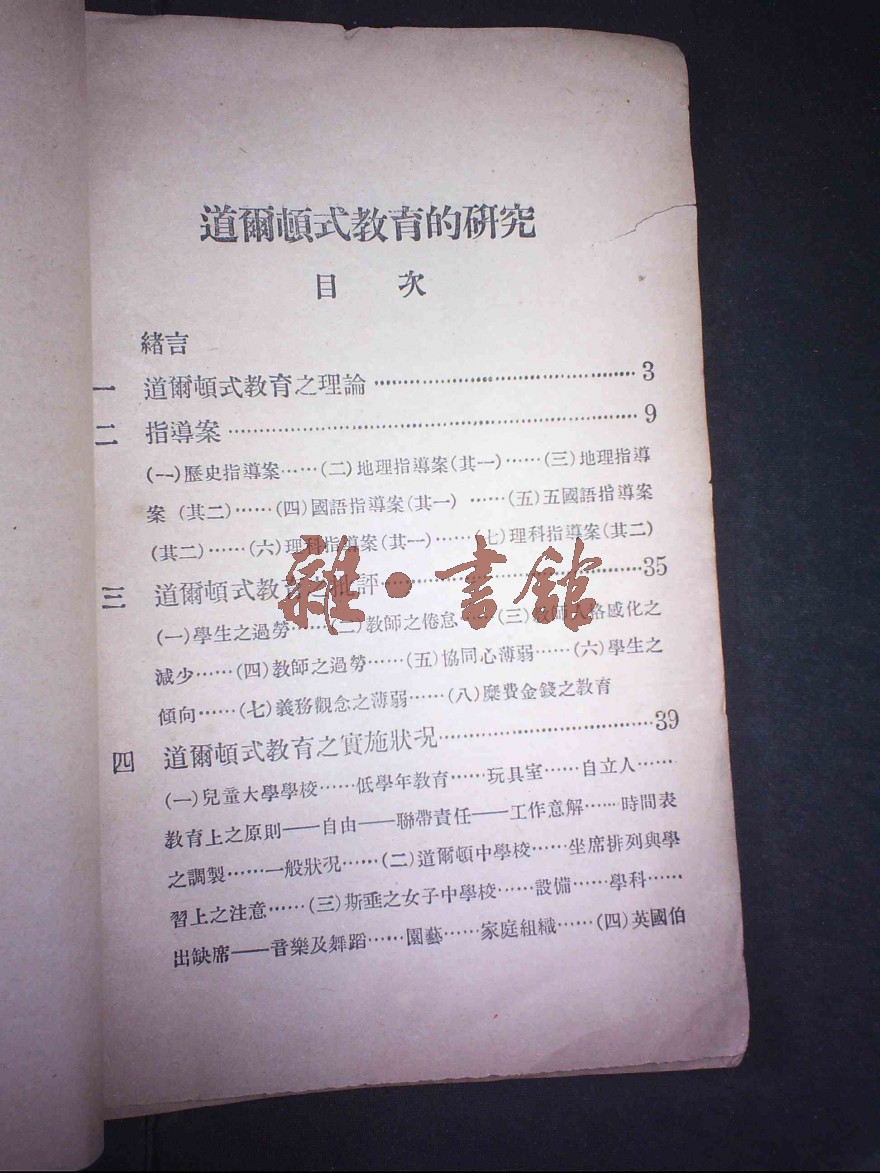 道爾頓式教育的研究
目 次
緒言
一 道爾頓式教育之理論……………………………3
二 指導案……………………………………………9
(一)歷史指導案……(二)地理指導案(其一)……(三)地理指導
案 (其二)……(四)國語指導案(其一) ……(五)五國語指導案
(其二)……(六)理科指導案(其一)……(七)理科指導案(其二)
三 道爾頓式教育之批評……………………………35
(一)學生之過勞……(二)教師之倦怠……(三)教師人格感化之
減少……(四)教師之過勞……(五)協同心薄弱……(六)學生之
傾向……(七)義務觀念之薄弱……(八)糜費金錢之教育
四 道爾頓式教育之實施狀况………………………39
(一)兒童大學學校……低學年教育……玩具室……自立人……
教育上之原則——自由——聯帶責任——工作意解……時間表
之調製……一般狀况……(二)道爾頓中學校……坐席排列與學
習上之注意……(三)斯垂之女子中學校……設備……學科……
出缺席——音樂及舞蹈……園藝……家庭組織……(四)英國伯
雜·書館